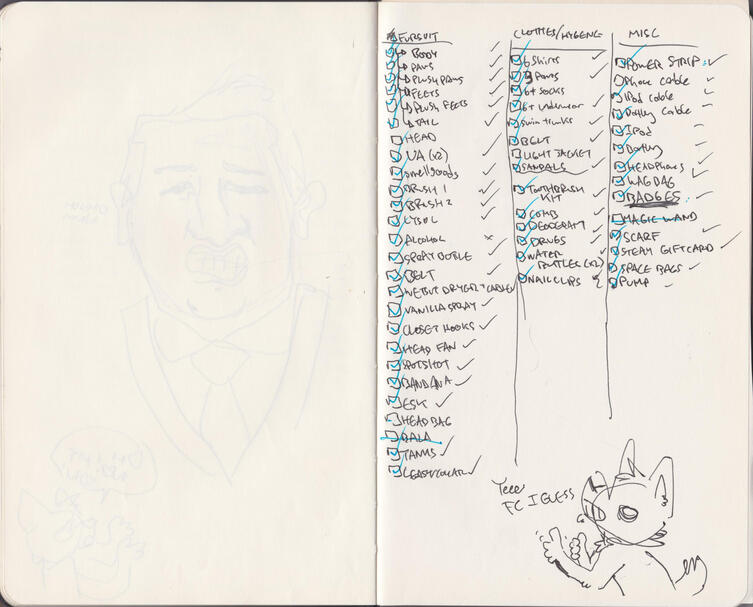 FURSUIT
BODY
PAWS
PLUSH PAWS
FEETS
PLUSH FEETS
TAIL
HEAD
UA (x2)
smellgoods
BRUSH 1
BRUSH 2
LYSOL
ALCOHOL
SPRAY BOTTLE
BELT
VANILLA SPRAY
CLOSET HOOKS
HEAD FAN
SPOTSHOT
BANDANA
ESK
HEAD BAG
BALA
TANKS
CLOTHES/HYGENE
6 Shirts
3 Pants
6+ socks
6+ underwear
swim trunks
BELT
LIGHT JACKET
SANDALS
TOOTHBRUSH
KIT
COMB
DEODERANT
DRUGS
WATER
BOTTLES (x2)
NAIL CLIPS
MISC
POWER STRIP
Phone cable
IPod cable
Battery cable
IPod
Battery
HEADPHONES
WAG BAG
BADGES
MAGIC WAND
SCARF
STEAM GIFTCARD
SPACE BAGS
PUMP
Yeee
FC I GUESS